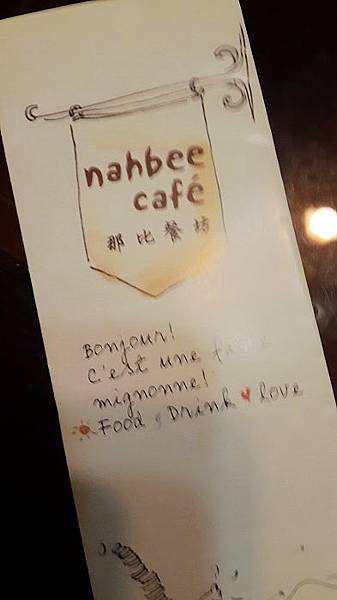 nahbee
café
那比餐坊
Bonjour!
C'est une
mignonne!
Food , Drink ♥ love